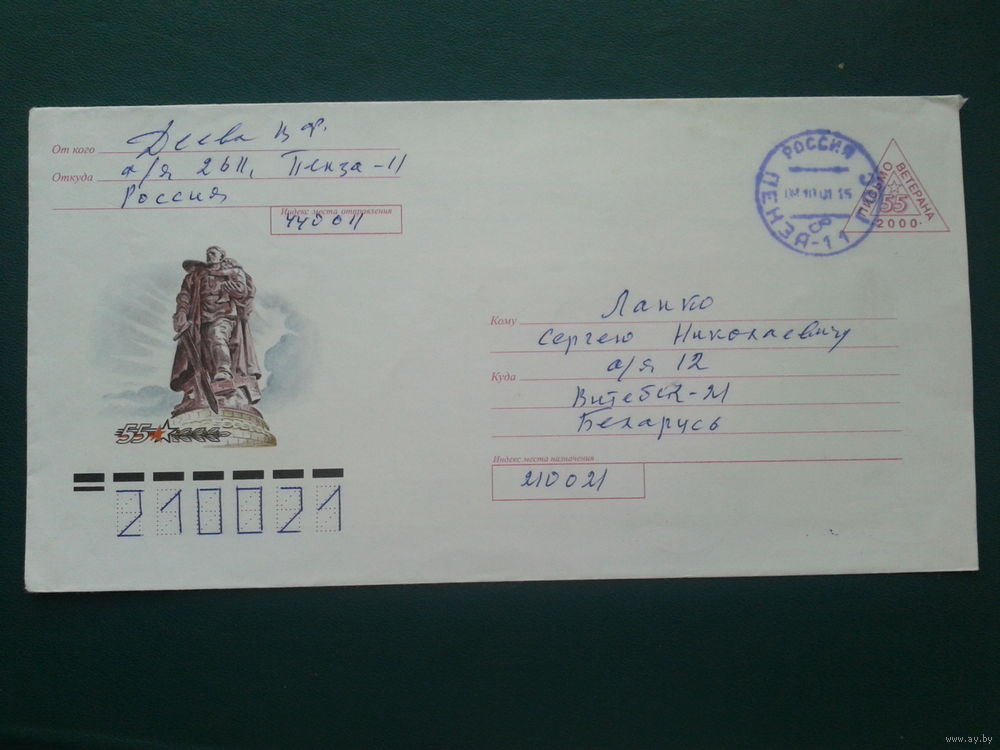 От кого Деева В Ф.
Откуда а/я 2611, Пенза-11
Россия
Индекс места отправления
440011
РОССИЯ
ПЕНЗА-11
ПИСЬМО ВЕТЕРАНА
55
·2000·
Кому Лапко
Сергею Николаевичу
а/я 12
Куда
Витебск-21
Беларусь
Индекс места назначения
210021
55
210021
www.ay.by